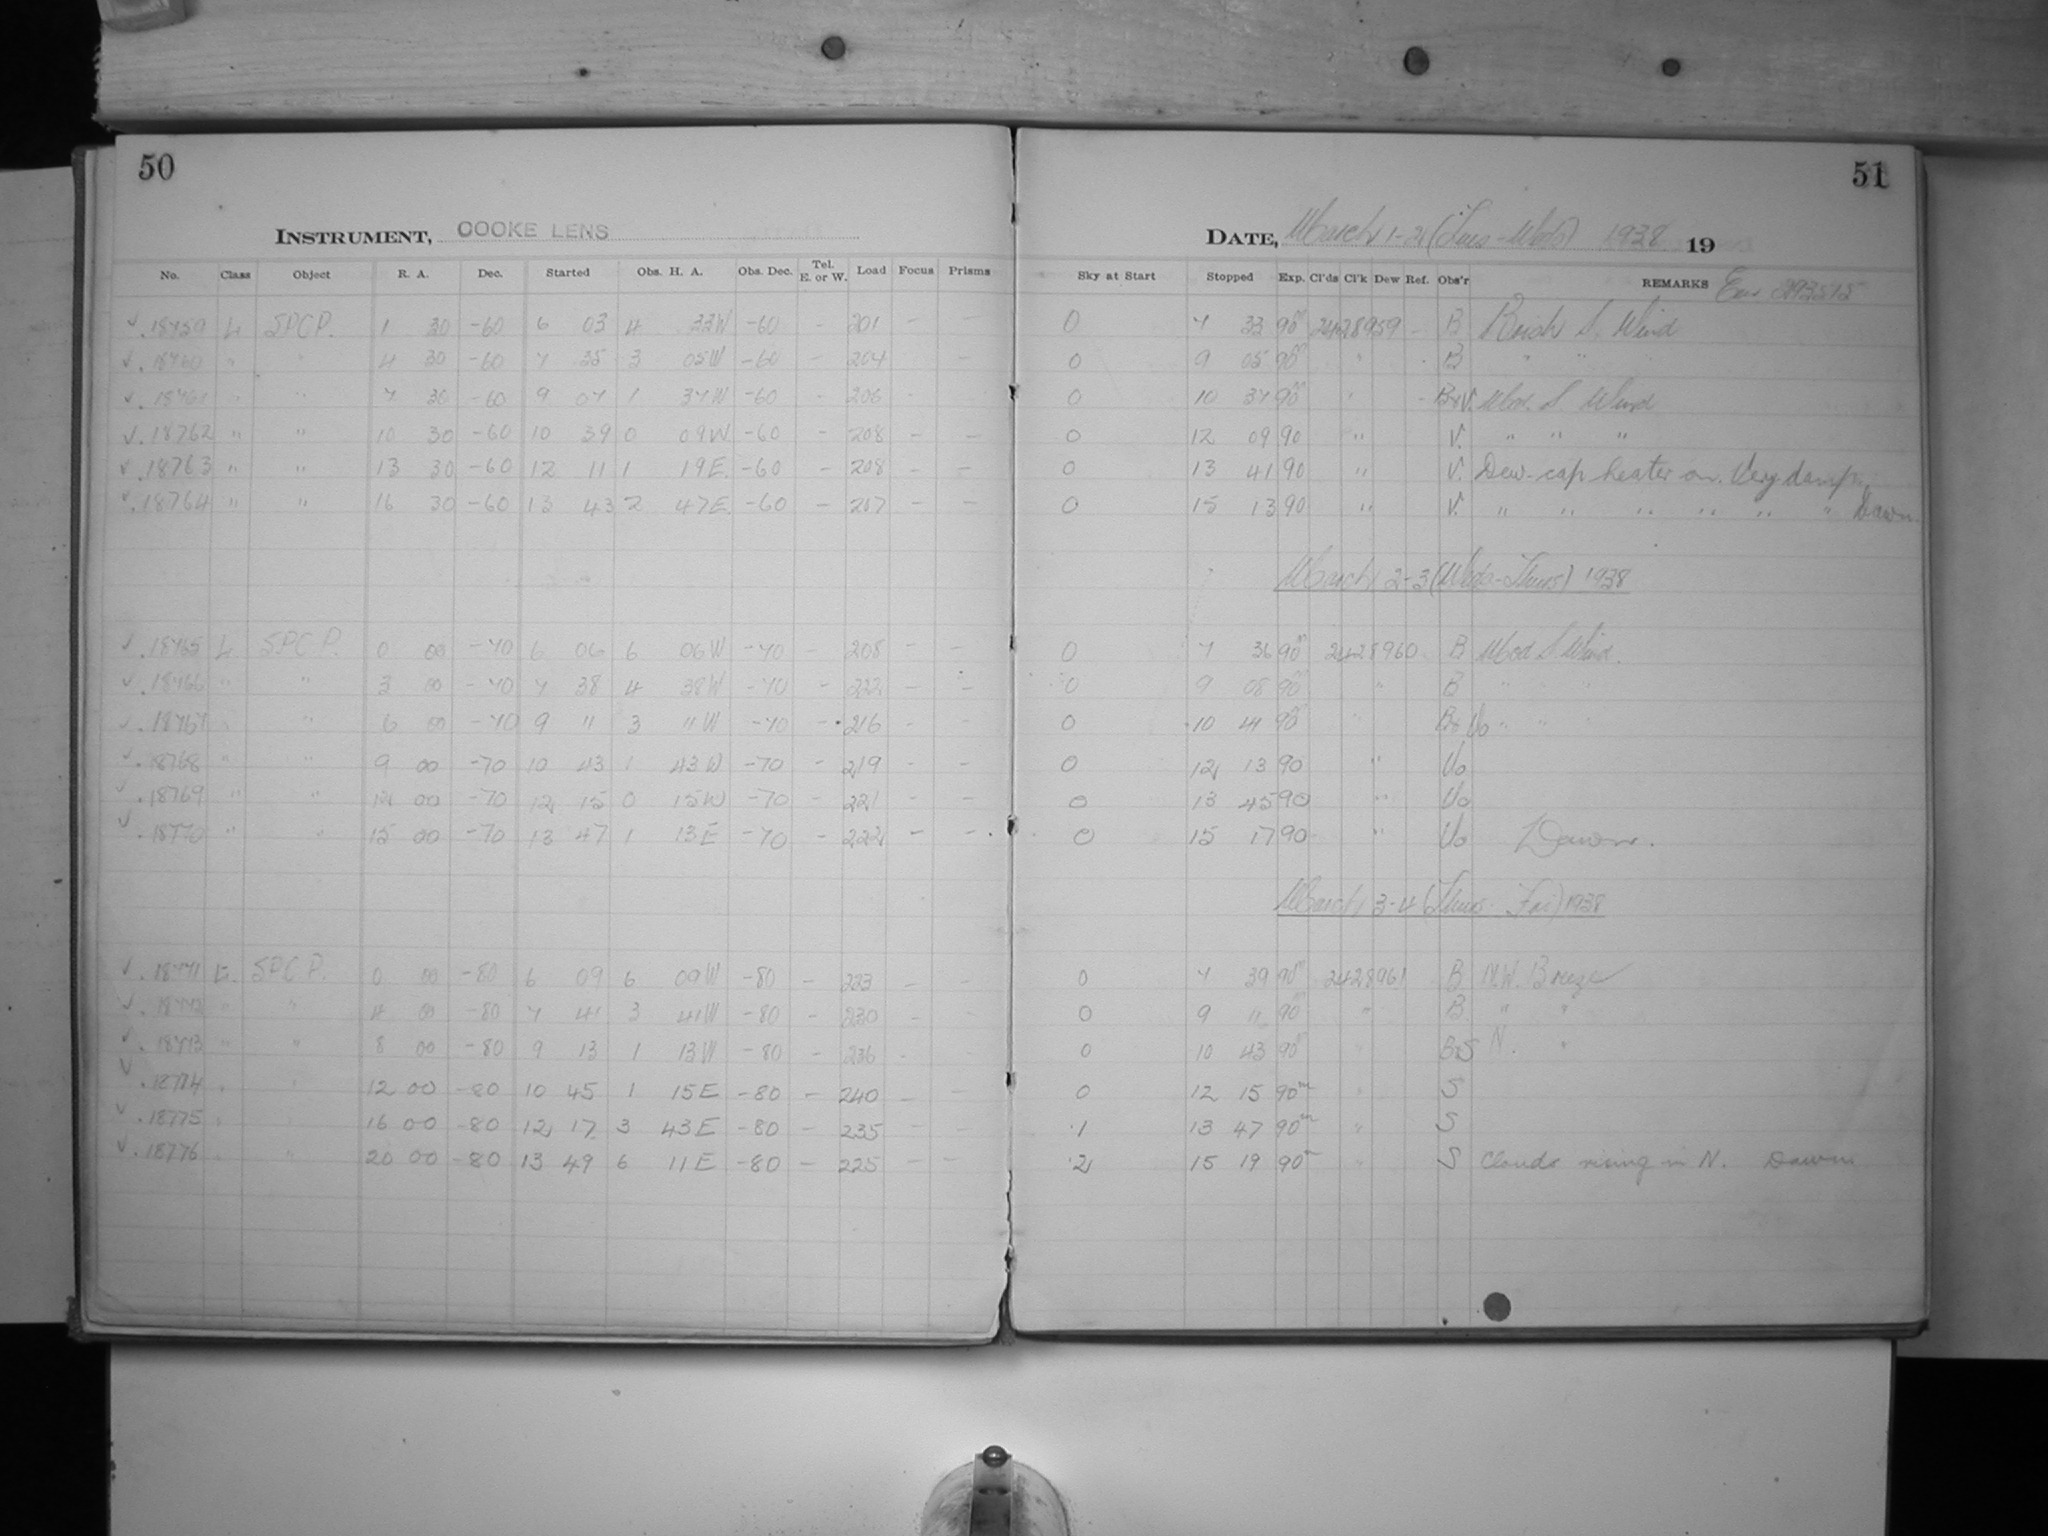 50
INSTRUMENT, COOKE LENS
No. Class Object R. A. Dec. Started Obs. H. A. Obs. Dec. Tel. E. or W. Load Focus Prisms
✓ .18759 L SPCP. 1 30 -60 6 03 4 33W -60 - 201 - -
✓ .18760 " " 4 30 -60 7 35 3 05W -60 - 204 -
✓ .18761 " " 7 30 -60 9 07 1 37W -60 - 206 - -
✓ .18762 " " 10 30 -60 10 39 0 09W -60 - 208 - -
✓ .18763 " " 13 30 -60 12 11 1 19E. -60 - 208 - -
✓ .18764 " " 16 30 -60 13 43 2 47E. -60 - 207 - -
✓ .18765 L SPC P. 0 00 -70 6 06 6 06W -70 - 208 - -
✓ .18766 " " 3 00 -70 7 38 4 38W -70 - 222 - -
✓ .18767 " " 6 00 -70 9 11 3 11W -70 - 216 - -
✓ .18768 " " 9 00 -70 10 43 1 43W -70 - 219 - -
✓ .18769 " " 12 00 -70 12 15 0 15W -70 - 221 - -
✓ .18770 " " 15 00 -70 13 47 1 13E -70 - 222 - -
✓ .18771 L SPC P. 0 00 -80 6 09 6 09W -80 - 223 - -
✓ .18772 " " 4 00 -80 7 41 3 41W -80 - 230 - -
✓ .18773 " " 8 00 -80 9 13 1 13W -80 - 236 - -
✓ .18774 " " 12 00 -80 10 45 1 15E -80 - 240 - -
✓ .18775 16 00 -80 12 17 3 43E -80 - 235 - -
✓ .18776 " 20 00 -80 13 49 6 11E -80 - 225 - -
51
DATE, March 1-2 (Tues-Weds) 1938 19
Sky at Start Stopped Exp. Cl'ds Cl'k Dew Ref. Obs'r REMARKS
0 7 33 90m 2428959 - B Brisk S. Wind
0 9 05 90m " B " "
0 10 37 90m " B+V. Mod. S. Wind
0 12 09 90 " V. " " "
0 13 41 90 " V. Dew-cap heater on. Very damp.
0 15 13 90 " V. " " " " " " Dawn.
March 2-3 (Weds-Thurs) 1938
0 7 36 90m 2428960 B Mod S. Wind.
0 9 08 90m " B " " "
0 10 41 90m " B+Vo " " "
0 12 13 90 " Vo
0 13 45 90 " Vo
0 15 17 90 " Vo Dawn.
March 3-4 (Thurs-Fri) 1938
0 7 39 90m 2428961 B N.W. Breeze
0 9 11 90m " B " "
0 10 43 90m " B+S N. "
0 12 15 90m " S
.1 13 47 90m " S
.2 15 19 90m " S Clouds rising in N. Dawn